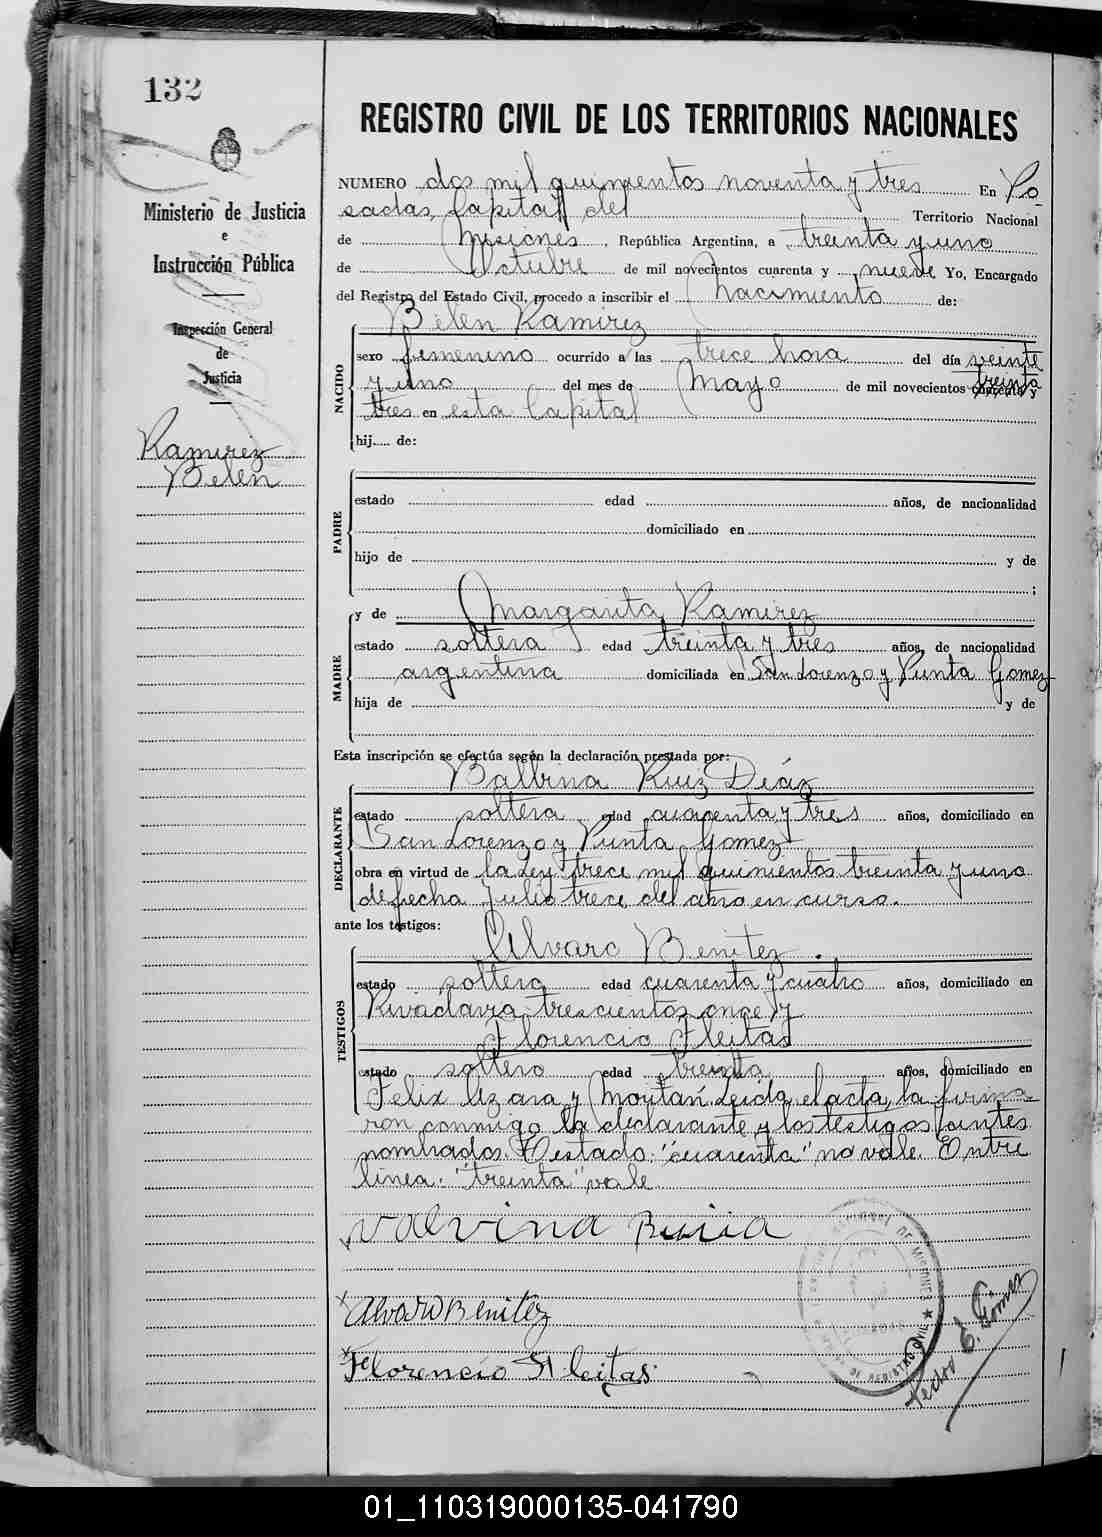 132
REGISTRO CIVIL DE LOS TERRITORIOS NACIONALES
Ministerio de Justicia
e
Instrucción Pública
Inspección General
de
Justicia
Ramirez
Belen
NUMERO dos mil quinientos noventa y tres En Po
sadas, Capital del Territorio Nacional
de Misiones, República Argentina, a treinta y uno
de Octubre de mil novecientos cuarenta y nueve Yo, Encargado
del Registro del Estado Civil, procedo a inscribir el nacimiento de:
Belen Ramirez
NACIDO
sexo femenino ocurrido a las trece hora del día veinte
y uno del mes de Mayo de mil novecientos cuarenta y treinta
tres en esta Capital
hij..... de:
PADRE
estado edad años, de nacionalidad
domiciliado en
hijo de y de
;
MADRE
y de Margarita Ramirez
estado soltera edad treinta y tres años, de nacionalidad
argentina domiciliada en San Lorenzo y Punta Gomez
hija de y de
Esta inscripción se efectúa según la declaración prestada por:
Balbina Ruiz Diáz
DECLARANTE
estado soltera edad cuarenta y tres años, domiciliado en
San Lorenzo y Punta Gomez
obra en virtud de la Ley trece mil quinientos treinta y uno
de fecha Julio trece del año en curso.
ante los testigos:
Alvaro Benitez.
TESTIGOS
estado soltero edad cuarenta y cuatro años, domiciliado en
Rivadavia trescientos once y
Florencio Fleitas
estado soltero edad treinta años, domiciliado en
Felix Azara y Moritán. Leida el acta, la firma
ron conmigo la declarante y los testigos antes
nombrados. Testado: "cuarenta" no vale. Entre
linea: "treinta" vale.
valvina
Alvaro Benitez
Florencio Fleitas
DE MISIONES
REGISTRO CIVIL
Pedro E. Gómez
01_110319000135-041790